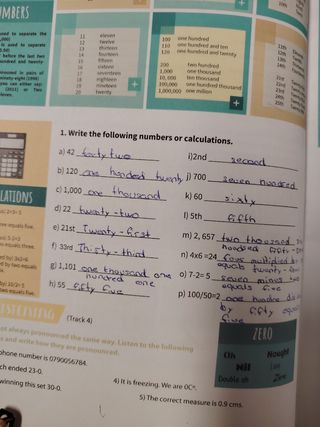 UMBERS
used to separate the
11 eleven
12 twelve
13 thirteen
14 fourteen
15 fifteen
16 sixteen
17 seventeen
18 eighteen
19 nineteen
20 twenty
100 one hundred
110 one hundred and ten
120 one hundred and twenty
200 two hundred
1,000 one thousand
10,000 ten thousand
100,000 one hundred thousand
1,000,000 one million
1. Write the following numbers or calculations.
a) 42 forty two
b) 120 one hundred twenty
c) 1,000 one thousand
d) 22 twenty-two
e) 21st Twenty-first
f) 33rd Thirty-third
g) 1,101 one thousand one
hundred one
h) 55 fifty five
i) 2nd second
j) 700 seven hundred
k) 60 sixty
l) 5th fifth
m) 2, 657 two thousand
hundred fifty-
n) 4x6=24 four multiplied
equals twenty-four
o) 7-2=5 seven minus two
equals five
p) 100/50=2 one
by fifty equals
five
LATIONS
LISTENING
(Track 4)
not always pronounced the same way. Listen to the following
s and write how they are pronounced.
phone number is 0790056784.
ch ended 23-0.
winning this set 30-0.
4) It is freezing. We are 0Cº.
5) The correct measure is 0.9 cms.
ZERO
Oh
Nought
Nil
Love
Double oh
Zero